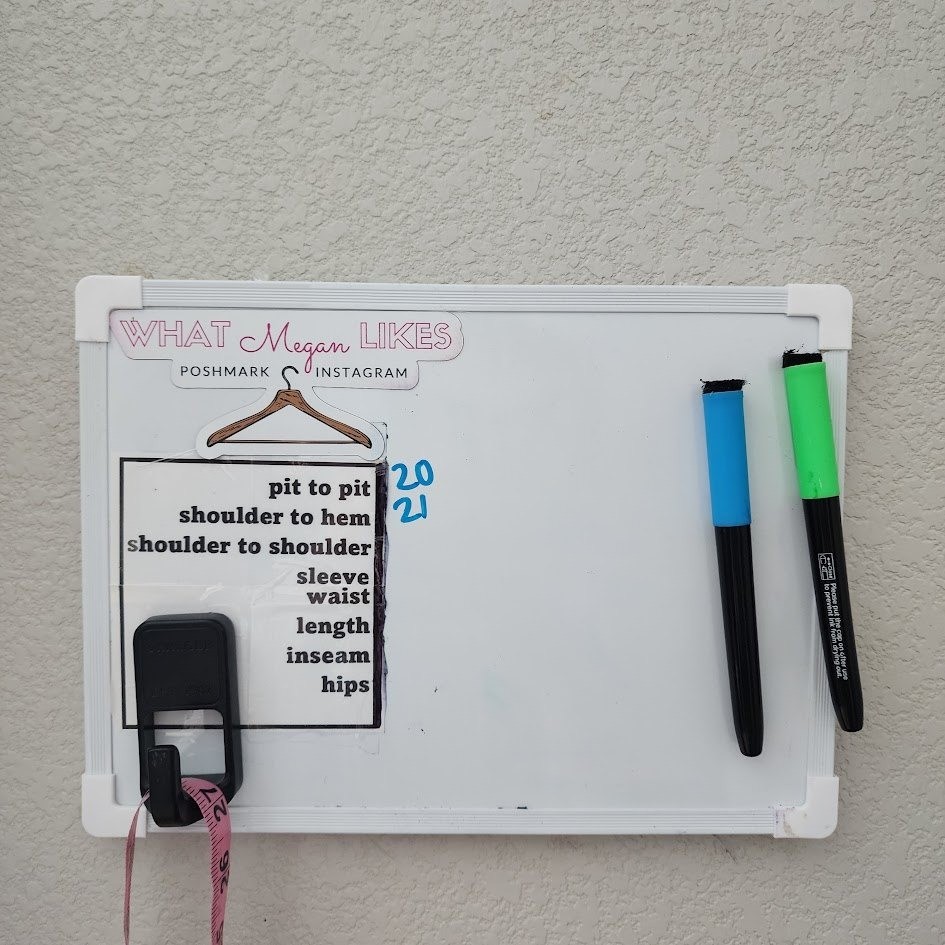 WHAT Megan LIKES
POSHMARK INSTAGRAM
pit to pit 20
shoulder to hem 21
shoulder to shoulder
sleeve
waist
length
inseam
hips
Please put the cap on after use
to prevent ink from drying out.
27
26